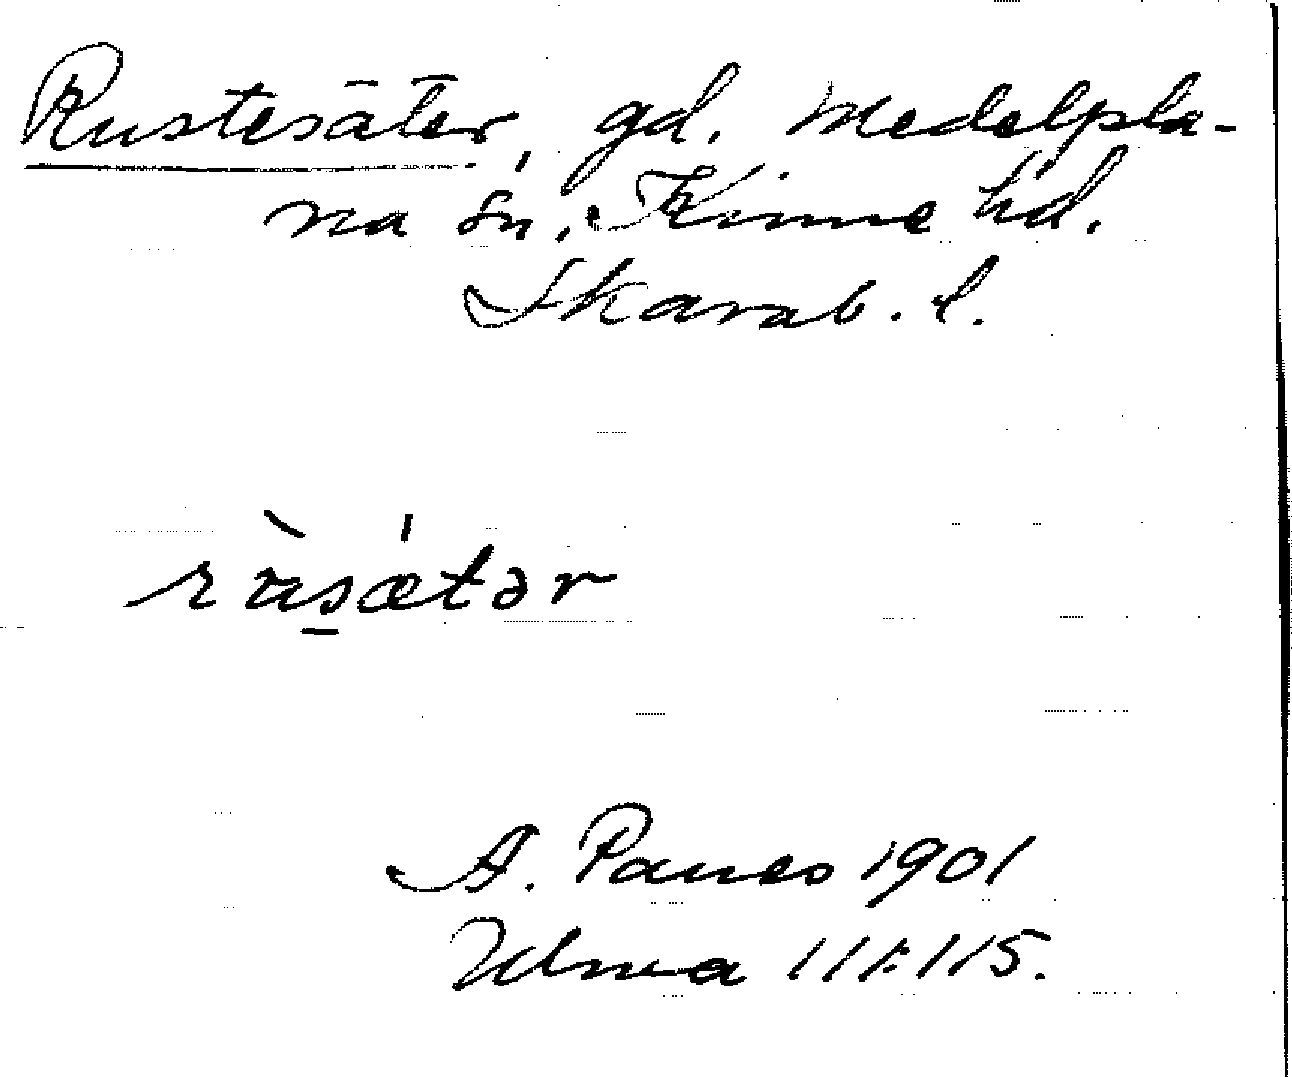 Rustesäter, gd. Medelpla-
na sn., Kinne hd.
Skarab. l.
A. Paues 1901
Ulma 111:115.